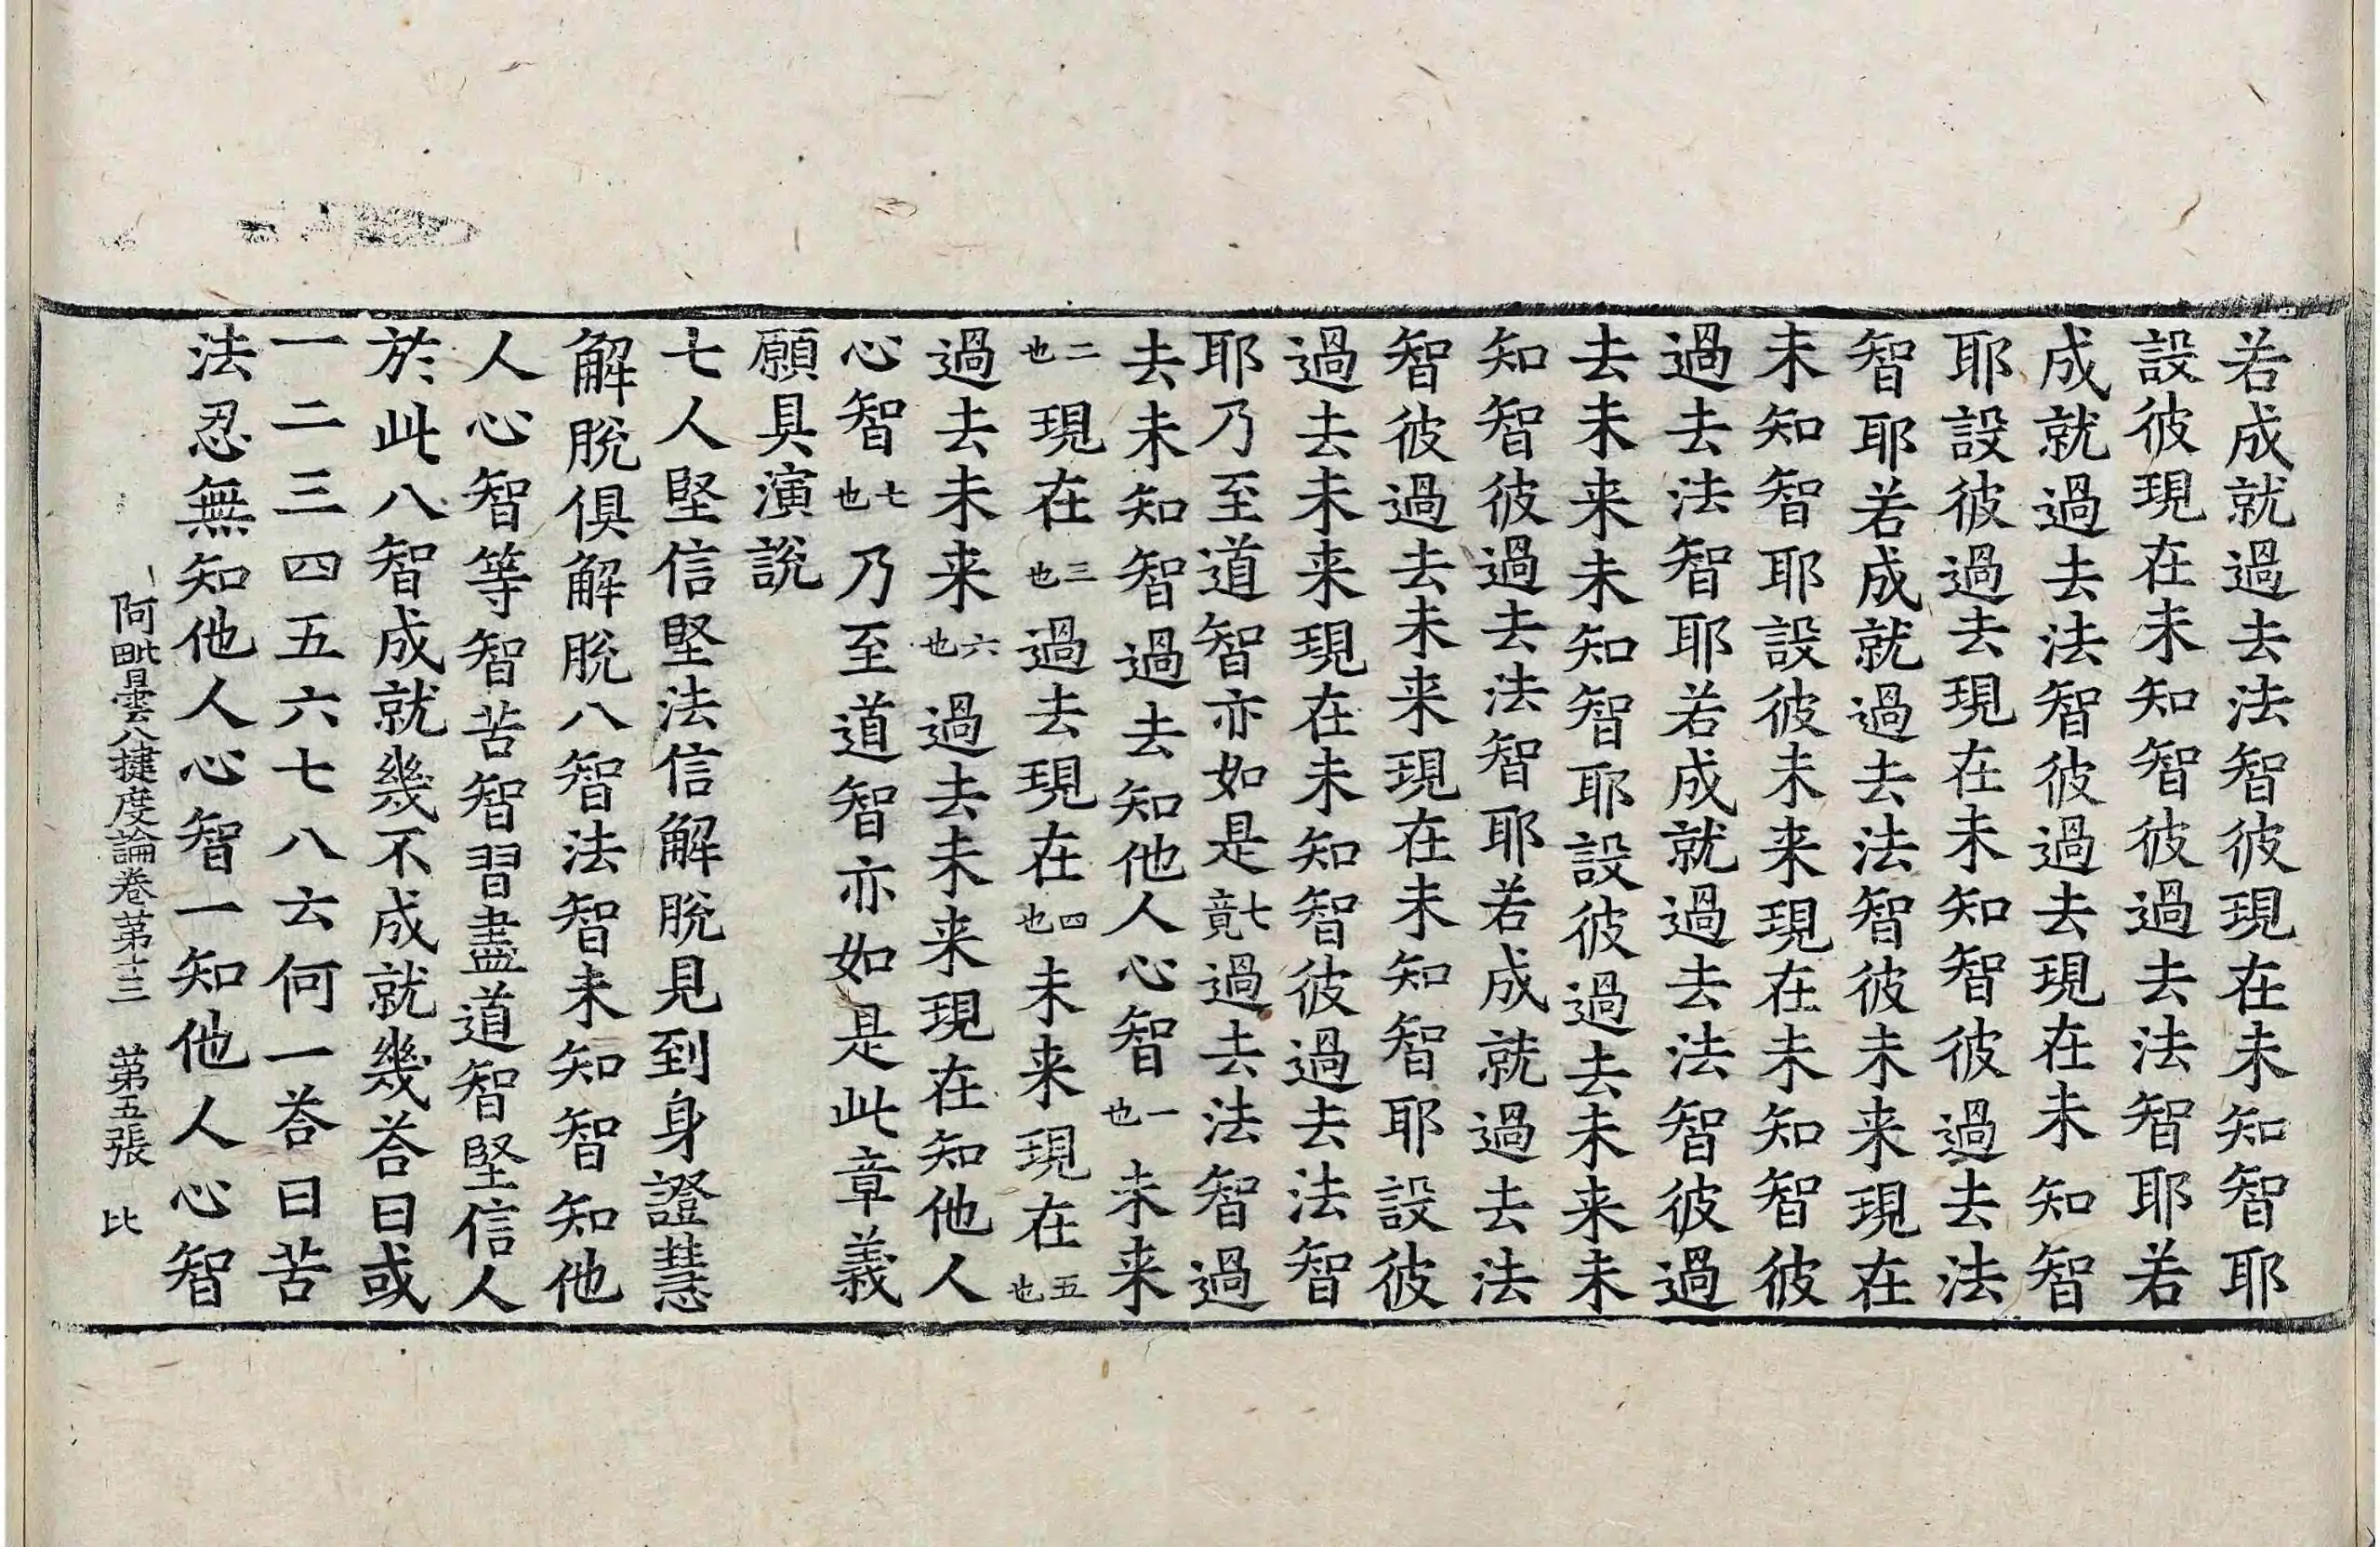 若成就過去法智彼現在未知智耶
設彼現在未知智彼過去法智耶若
成就過去法智彼過去現在未知智
耶設彼過去現在未知智彼過去法
智耶若成就過去法智彼未来現在
未知智耶設彼未来現在未知智彼
過去法智耶若成就過去法智彼過
去未来未知智耶設彼過去未来未
知智彼過去法智耶若成就過去法
智彼過去未来現在未知智耶設彼
過去未来現在未知智彼過去法智
耶乃至道智亦如是七竟過去法智過
去未知智過去知他人心智一也未来
二也現在三也過去現在四也未来現在五也
過去未来六也過去未来現在知他人
心智七也乃至道智亦如是此章義
願具演說
七人堅信堅法信解脫見到身證慧
解脫俱解脫八智法智未知智知他
人心智等智苦智習盡道智堅信人
於此八智成就幾不成就幾荅曰或
一二三四五六七八云何一荅曰苦
法忍無知他人心智一知他人心智
阿毗曇八揵度論卷苐十三 苐五張 比